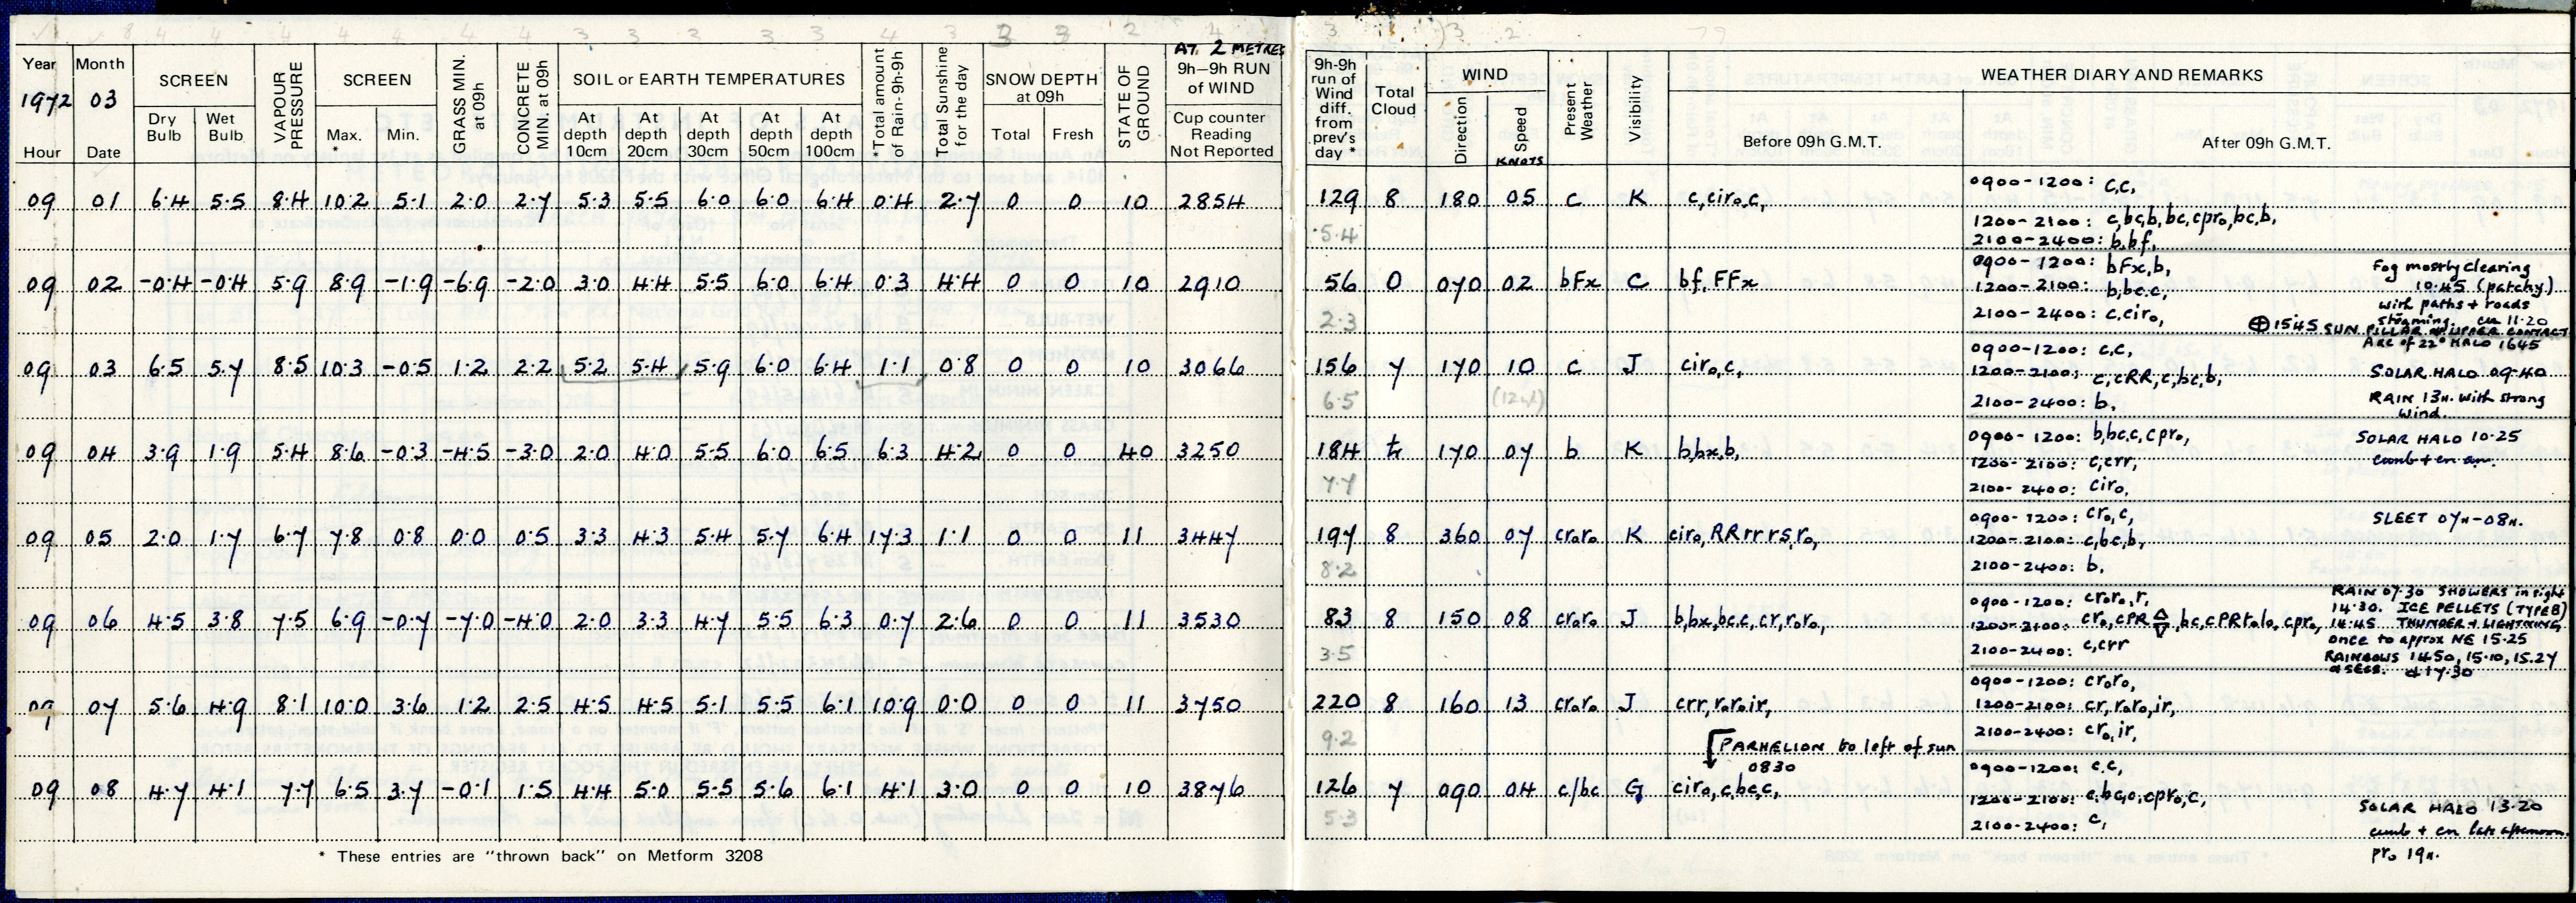 AT 2 METRES
Year Month SCREEN VAPOUR PRESSURE SCREEN GRASS MIN. at 09h CONCRETE MIN. at 09h SOIL or EARTH TEMPERATURES *Total amount of Rain-9h-9h Total Sunshine for the day SNOW DEPTH at 09h STATE OF GROUND 9h—9h RUN of WIND 9h-9h run of Wind diff. from prev's day * Total Cloud WIND Present Weather Visibility WEATHER DIARY AND REMARKS
1972 03
Hour Date Dry Bulb Wet Bulb Max. * Min. At depth 10cm At depth 20cm At depth 30cm At depth 50cm At depth 100cm Total Fresh Cup counter Reading Not Reported Direction Speed KNOTS Before 09h G.M.T. After 09h G.M.T.
09 01 6.4 5.5 8.4 10.2 5.1 2.0 2.7 5.3 5.5 6.0 6.0 6.4 0.4 2.7 0 0 10 2854 129 8 180 05 c K c,ciro,c, 0900-1200: c,c,
5.4 1200-2100: c,bc,b,bc,cpro,bc,b,
2100-2400: b,bf,
09 02 -0.4 -0.4 5.9 8.9 -1.9 -6.9 -2.0 3.0 4.4 5.5 6.0 6.4 0.3 4.4 0 0 10 2910 56 0 070 02 bFx C bf,FFx 0900-1200: bFx,b, Fog mostly clearing
1200-2100: b,bc.c, 10.45 (patchy)
with paths + roads
2.3 2100-2400: c,ciro, steaming. cu 11.20
⊕1545 SUN PILLAR & UPPER CONTACT
Arc of 22° HALO 1645
09 03 6.5 5.7 8.5 10.3 -0.5 1.2 2.2 5.2 5.4 5.9 6.0 6.4 1.1 0.8 0 0 10 3066 156 7 170 10 c J ciro,c, 0900-1200: c,c,
1200-2100: c,cRR,c,bc,b, SOLAR HALO 09.40
6.5 2100-2400: b, RAIN 13H. with strong
wind.
09 04 3.9 1.9 5.4 8.6 -0.3 -4.5 -3.0 2.0 4.0 5.5 6.0 6.5 6.3 4.2 0 0 40 3250 184 170 07 b K b,bx,b, 0900-1200: b,bc.c,cpro, SOLAR HALO 10.25
1200-2100: c,crr,
7.7 2100-2400: ciro,
09 05 2.0 1.7 6.7 7.8 0.8 0.0 0.5 3.3 4.3 5.4 5.7 6.4 17.3 1.1 0 0 11 3447 197 8 360 07 croro K ciro,RRrrrs,ro, 0900-1200: cro,c, SLEET 07H-08H.
1200-2100: c,bc,b,
8.2 2100-2400: b,
09 06 4.5 3.8 7.5 6.9 -0.7 -7.0 -4.0 2.0 3.3 4.7 5.5 6.3 0.7 2.6 0 0 11 3530 83 8 150 08 croro J b,bx,bc.c,cr,roro, 0900-1200: croro,r, RAIN 07.30 SHOWERS in sight
14.30. ICE PELLETS (TYPE B)
1200-2100: cro,cPR,bc,cPRtolo,cpro, 14.45 THUNDER + LIGHTNING
once to approx NE 15.25
3.5 2100-2400: c,crr RAINBOWS 14.50, 15.10, 15.27
17.30
09 07 5.6 4.9 8.1 10.0 3.6 1.2 2.5 4.5 4.5 5.1 5.5 6.1 10.9 0.0 0 0 11 3750 220 8 160 13 croro J crr,roroir, 0900-1200: croro,
1200-2100: cr,roro,ir,
9.2 2100-2400: cro,ir,
PARHELION to left of sun
0830
09 08 4.7 4.1 7.7 6.5 3.7 -0.1 1.5 4.4 5.0 5.5 5.6 6.1 4.1 3.0 0 0 10 3876 126 7 090 04 c/bc G ciro,c,bc,c, 0900-1200: c.c,
1200-2100: cpro,c, SOLAR HALO 13.20
5.3 2100-2400: c, cumb + cn late afternoon.
pro 19H.
* These entries are "thrown back" on Metform 3208